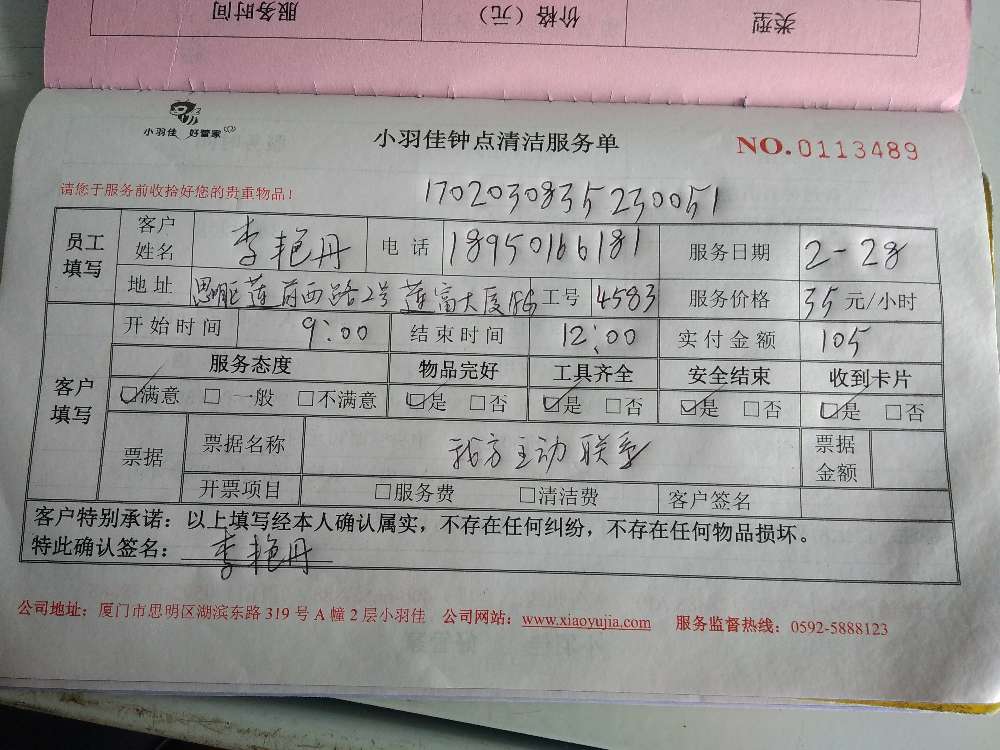 类型 价格（元） 服务时间
小羽佳 好管家
小羽佳钟点清洁服务单 NO.0113489
请您于服务前收拾好您的贵重物品！
1702030835230051
员工填写 客户姓名 李艳丹 电话 18950166181 服务日期 2-28
地址 思明区莲前西路2号莲富大厦 工号 4583 服务价格 35元/小时
客户填写 开始时间 9:00 结束时间 12:00 实付金额 105
服务态度 物品完好 工具齐全 安全结束 收到卡片
☑满意 □一般 □不满意 ☑是 □否 ☑是 □否 ☑是 □否 ☑是 □否
票据 票据名称 我方主动联系 票据金额
开票项目 □服务费 □清洁费 客户签名
客户特别承诺：以上填写经本人确认属实，不存在任何纠纷，不存在任何物品损坏。
特此确认签名：李艳丹
公司地址：厦门市思明区湖滨东路 319 号 A 幢 2 层小羽佳 公司网站：www.xiaoyujia.com 服务监督热线：0592-5888123